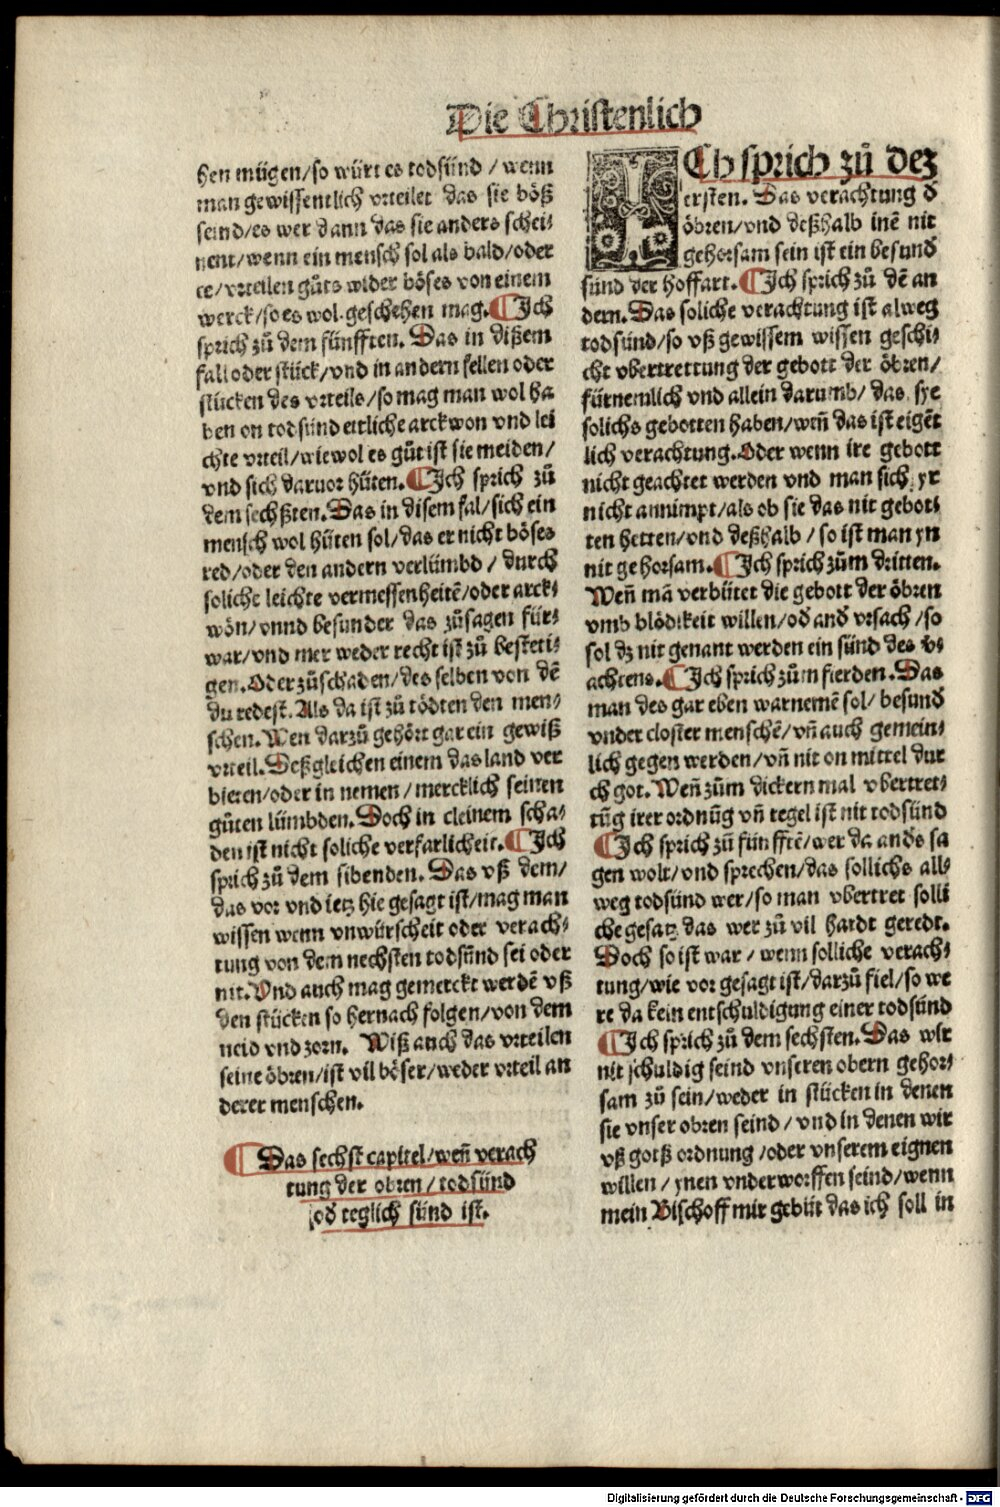 Die Christenlich
hen mügen/so würt es todsünd / wenn
man gewissentlich vrteilet das sie böß
seind/es wer dann das sie anders schei⸗
nent/wenn ein mensch sol als bald/oder
ee/vrteilen gůts wider böses von einem
werck/so es wol geschehen mag. ¶Ich
sprich zů dem fünfften. Das in dißem
fall oder stück/vnd in andern fellen oder
stücken des vrteils/so mag man wol ha
ben on todsünd ettliche arckwon vnd lei
chte vrteil/wiewol es gůt ist sie meiden/
vnd sich daruor hüten. ¶Ich sprich zů
dem sechßten. Das in disem fal/sich ein
mensch wol hüten sol/das er nicht böses
red/oder den andern verlümbd / durch
soliche leichte vermessenheitē/oder arck⸗
wön/vnnd besunder das zůsagen für⸗
war/vnd mer weder recht ist zů besteti⸗
gen. Oder zůschaden/des selben von dē
du redest. Als da ist zů tödten den men⸗
schen. Wen darzů gehört gar ein gewiß
vrteil. Deßgleichen einem das land ver
bieten/oder in nemen / mercklich seinen
gůten lümbden. Doch in cleinem scha⸗
den ist nicht soliche verfarlicheit. ¶Ich
sprich zů dem sibenden. Das vß dem/
das vor vnd ietz hie gesagt ist/mag man
wissen wenn vnwürscheit oder verach⸗
tung von dem nechsten todsünd sei oder
nit. Vnd auch mag gemerckt werdē vß
den stücken so hernach folgen/von dem
neid vnd zorn. Wiß auch das vrteilen
seine öbren/ist vil böser/weder vrteil an
derer menschen.
¶Das sechst capitel/weñ verach
tung der obren / todsünd
od teglich sünd ist.
ICh sprich zů dez
ersten. Das verachtung d
öbren/vnd deßhalb inē nit
gehorsam sein ist ein besund
sünd der hoffart. ¶Ich sprich zů dē an
dern. Das soliche verachtung ist alweg
todsünd/so vß gewissem wissen geschi⸗
cht vbertrettung der gebott der öbren/
fürnemlich vnd allein darumb/ das sye
solichs gebotten haben/weñ das ist eigēt
lich verachtung. Oder wenn ire gebott
nicht geachtet werden vnd man sich yr
nicht annimpt/als ob sie das nit gebot⸗
ten hetten/vnd deßhalb / so ist man yn
nit gehorsam. ¶Ich sprich zům dritten.
Weñ mā verbütet die gebott der öbren
vmb blödikeit willen/od and vrsach /so
sol dz nit genant werden ein sünd des v⸗
achtens. ¶Ich sprich zům fierden. Das
man des gar eben warnemē sol/ besund
vnder closter menschē/vñ auch gemein⸗
lich gegen werden/vñ nit on mittel dur
ch got. Weñ zům dickern mal vbertret⸗
tūg irer ordnūg vñ regel ist nit todsünd
¶Ich sprich zů fünfftē/wer da ands sa
gen wolt/vnd sprechen/das sollichs all⸗
weg todsünd wer/so man vbertret solli
che gesatz das wer zů vil hardt geredt.
Doch so ist war / wenn solliche verach⸗
tung/wie vor gesagt ist/darzů fiel/so we
re da kein entschuldigung einer todsünd
¶Ich sprich zů dem sechsten. Das wir
nit schuldig seind vnseren obern gehor⸗
sam zů sein/weder in stücken in denen
sie vnser obren seind / vnd in denen wir
vß gotß ordnung /oder vnserem eignen
willen / ynen vnderworffen seind/wenn
mein Bischoff mir gebüt das ich soll in
Digitalisierung gefördert durch die Deutsche Forschungsgemeinschaft - DFG